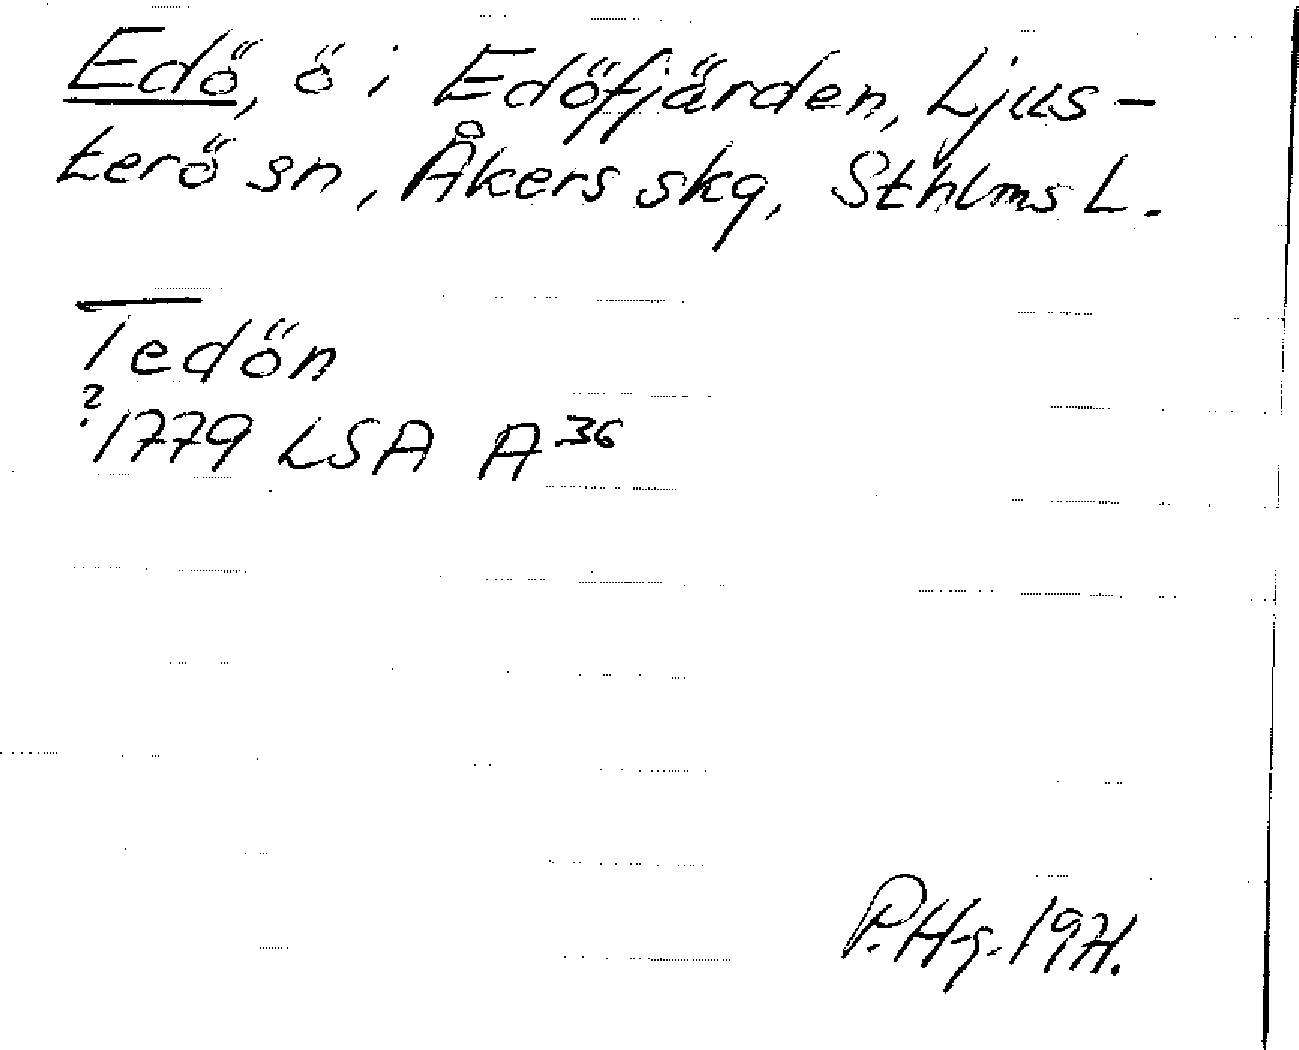 Edö, ö i Edöfjärden, Ljus-
terö sn, Åkers skg, Sthlms L.
Tedön
? 1779 LSA A 36
P. Hg. 1971.